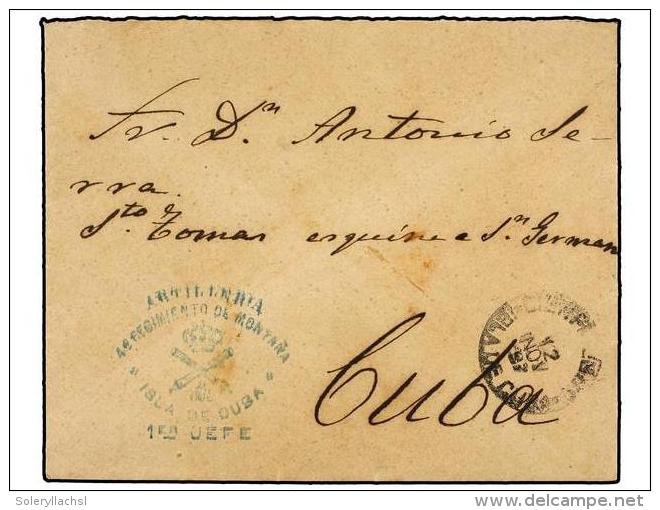 Sr. Dn Antonio Se-
rra.
Sto Tomas esquina a Sn German
Cuba
ARTILLERIA
4º REGIMIENTO DE MONTAÑA
" ISLA DE CUBA "
1ER JEFE
12
NOV
Soleryllachsl
© delcampe.net